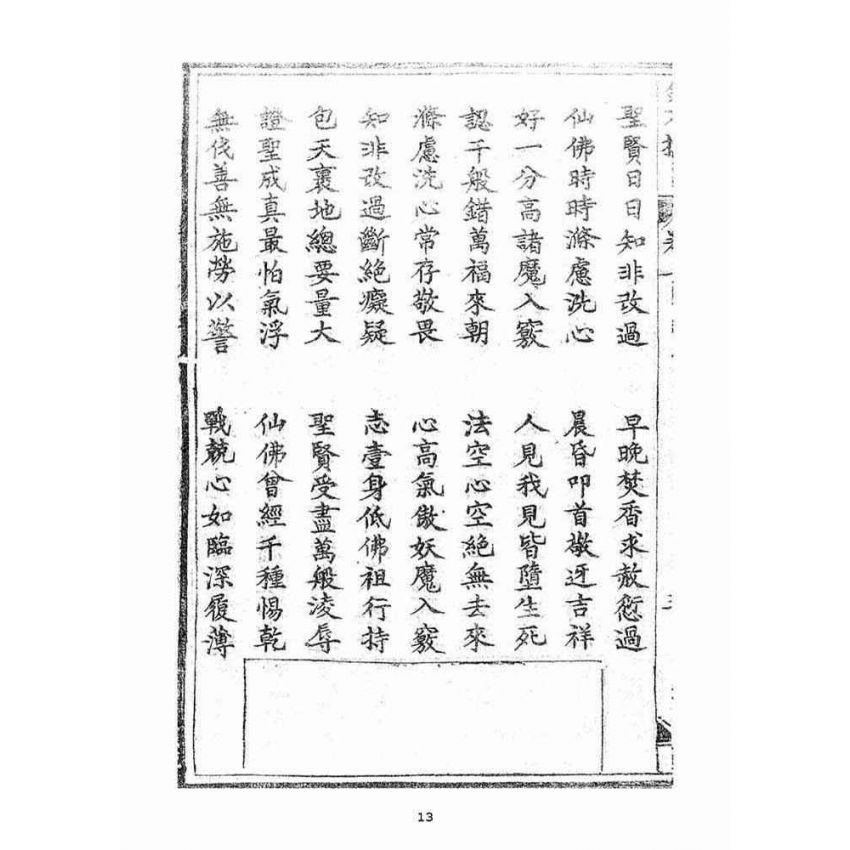 聖賢日日知非改過 早晚焚香求赦愆過
仙佛時時滌慮洗心 晨昏叩首敬迓吉祥
好一分高諸魔入竅 人見我見皆墮生死
認千般錯萬福來朝 法空心空絕無去來
滌慮洗心常存敬畏 心高氣傲妖魔入竅
知非改過斷絕癡疑 志壹身低佛祖行持
包天裹地總要量大 聖賢受盡萬般淩辱
證聖成真最怕氣浮 仙佛曾經千種惕乾
無伐善無施勞以警 戰兢心如臨深履薄
13